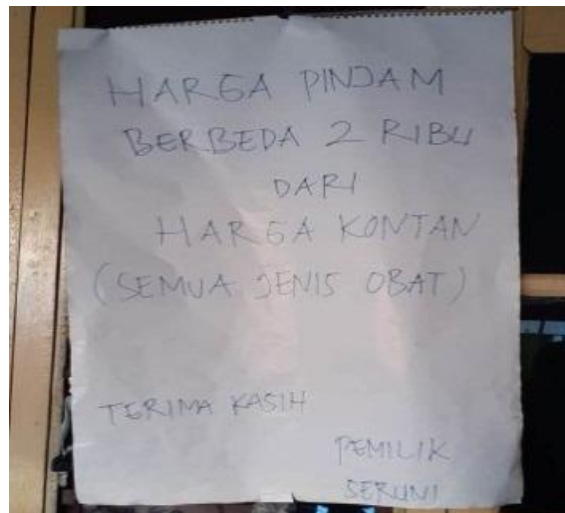 HARGA PINJAM
BERBEDA 2 RIBU
DARI
HARGA KONTAN
(SEMUA JENIS OBAT)
TERIMA KASIH
PEMILIK
SERUNI